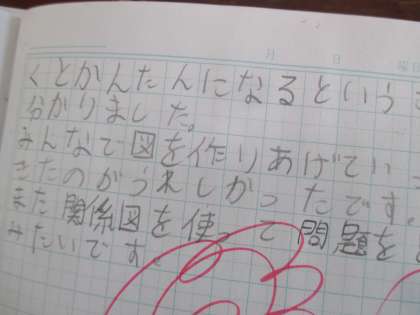 月 日 曜日
くとかんたんになるという
分かりました。
みんなで図を作りあげてい
きたのがうれしかったです。
また関係図を使って問題を
みたいです。